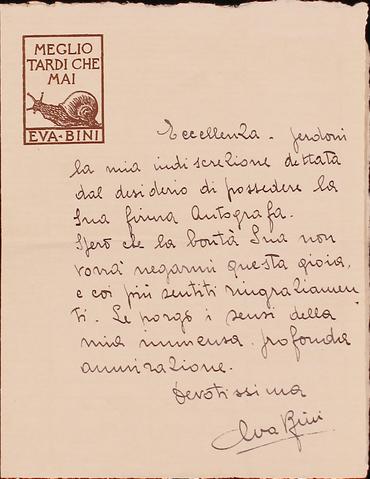 MEGLIO
TARDI CHE
MAI
EVA-BINI
Eccellenza - perdoni
la mia indiscrezione dettata
dal desiderio di possedere la
Sua firma Autografa.
Spero che la bontà Sua non
vorrà negarmi questa gioia,
e coi più sentiti ringraziamen
ti. Le porgo i sensi della
mia immensa profonda
ammirazione.
Devotissima
Eva Bini